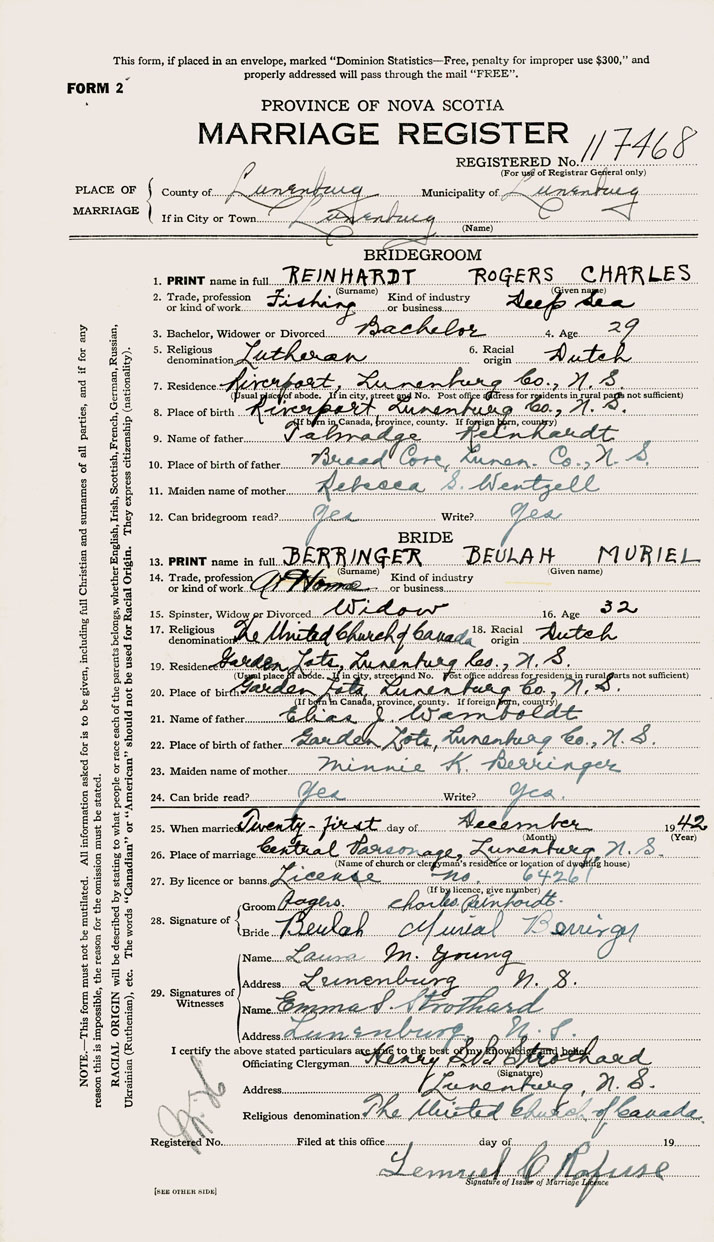 This form, if placed in an envelope, marked "Dominion Statistics—Free, penalty for improper use $300," and
properly addressed will pass through the mail "FREE".
FORM 2
PROVINCE OF NOVA SCOTIA
MARRIAGE REGISTER
REGISTERED No. 117468
(For use of Registrar General only)
PLACE OF MARRIAGE
County of Lunenburg Municipality of Lunenburg
If in City or Town Lunenburg
(Name)
BRIDEGROOM
1. PRINT name in full REINHARDT ROGERS CHARLES
(Surname) (Given name)
2. Trade, profession or kind of work Fishing Kind of industry or business Deep Sea
3. Bachelor, Widower or Divorced Bachelor 4. Age 29
5. Religious denomination Lutheran 6. Racial origin Dutch
7. Residence Riverport, Lunenburg Co., N. S.
(Usual place of abode. If in city, street and No. Post office address for residents in rural parts not sufficient)
8. Place of birth Riverport Lunenburg Co., N. S.
(If born in Canada, province, county. If foreign born, country)
9. Name of father Talmadge Reinhardt
10. Place of birth of father Broad Cove, Lunen. Co., N. S.
11. Maiden name of mother Rebecca S. Wentzell
12. Can bridegroom read? Yes Write? Yes
BRIDE
13. PRINT name in full BERRINGER BEULAH MURIEL
(Surname) (Given name)
14. Trade, profession or kind of work At Home Kind of industry or business
15. Spinster, Widow or Divorced Widow 16. Age 32
17. Religious denomination The United Church of Canada 18. Racial origin Dutch
19. Residence Garden Lots, Lunenburg Co., N. S.
(Usual place of abode. If in city, street and No. Post office address for residents in rural parts not sufficient)
20. Place of birth Garden Lots, Lunenburg Co., N. S.
(If born in Canada, province, county. If foreign born, country)
21. Name of father Elias J. Wamboldt
22. Place of birth of father Garden Lots, Lunenburg Co., N. S.
23. Maiden name of mother Minnie K. Berringer
24. Can bride read? Yes Write? Yes.
25. When married Twenty-first day of December 1942
(Month) (Year)
26. Place of marriage Central Parsonage, Lunenburg, N. S.
(Name of church or clergyman's residence or location of dwelling house)
27. By licence or banns License no. 6426
(If by licence, give number)
28. Signature of
Groom Rogers. Charles Reinhardt.
Bride Beulah Murial Berringer
29. Signatures of Witnesses
Name Laura M. Young
Address Lunenburg N. S.
Name Emma S. Strothard
Address Lunenburg N. S.
I certify the above stated particulars are true to the best of my knowledge and belief.
Officiating Clergyman Henry Strothard
(Signature)
Address Lunenburg, N. S.
Religious denomination The United Church of Canada.
Registered No. Filed at this office day of 19
Lemuel C Rafuse
Signature of Issuer of Marriage Licence
[SEE OTHER SIDE]
NOTE.—This form must not be mutilated. All information asked for is to be given, including full Christian and surnames of all parties, and if for any
reason this is impossible, the reason for the omission must be stated.
RACIAL ORIGIN will be described by stating to what people or race each of the parents belongs, whether English, Irish, Scottish, French, German, Russian,
Ukrainian (Ruthenian), etc. The words "Canadian" or "American" should not be used for Racial Origin. They express citizenship (nationality).